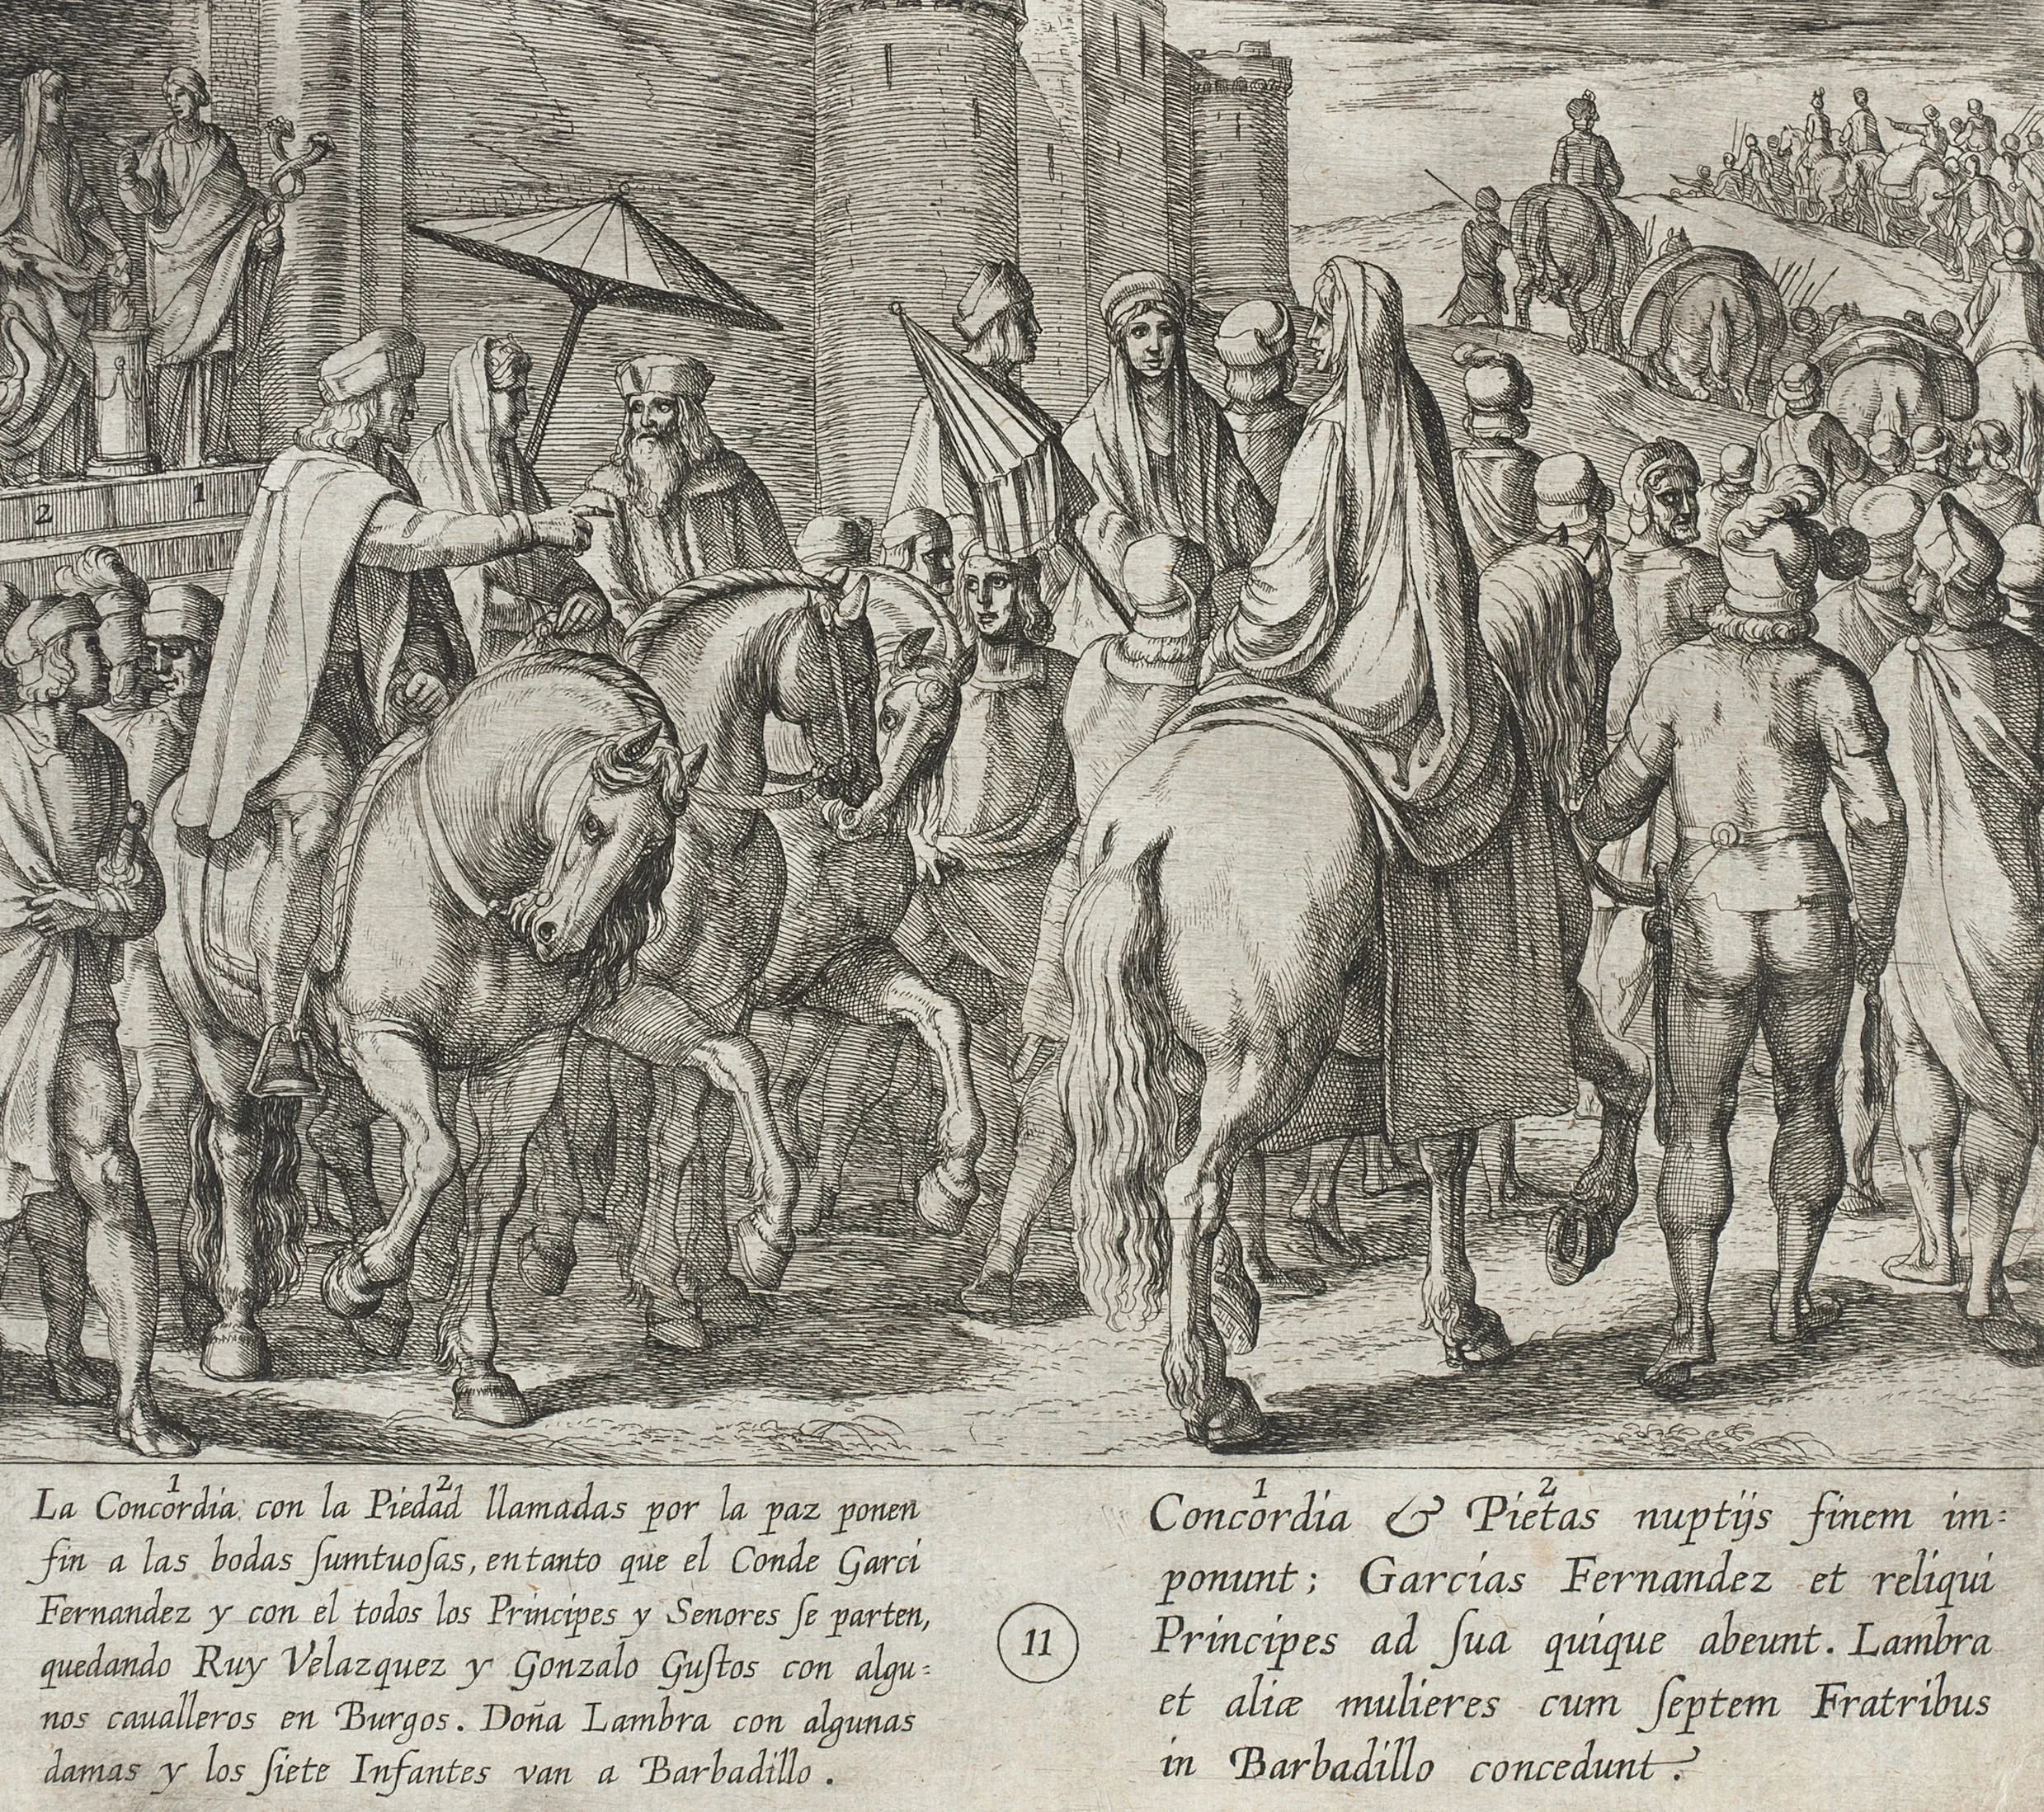 2
1
1 2
La Concordia con la Piedad llamadas por la paz ponen
fin a las bodas ſumtuoſas, entanto que el Conde Garci
Fernandez y con el todos los Principes y Senores ſe parten,
quedando Ruy Velazquez y Gonzalo Guſtos con algu:
nos caualleros en Burgos. Doña Lambra con algunas
damas y los ſiete Infantes van a Barbadillo.
11
1 2
Concordia & Pietas nuptijs finem im:
ponunt; Garcias Fernandez et reliqui
Principes ad ſua quique abeunt. Lambra
et aliæ mulieres cum ſeptem Fratribus
in Barbadillo concedunt.